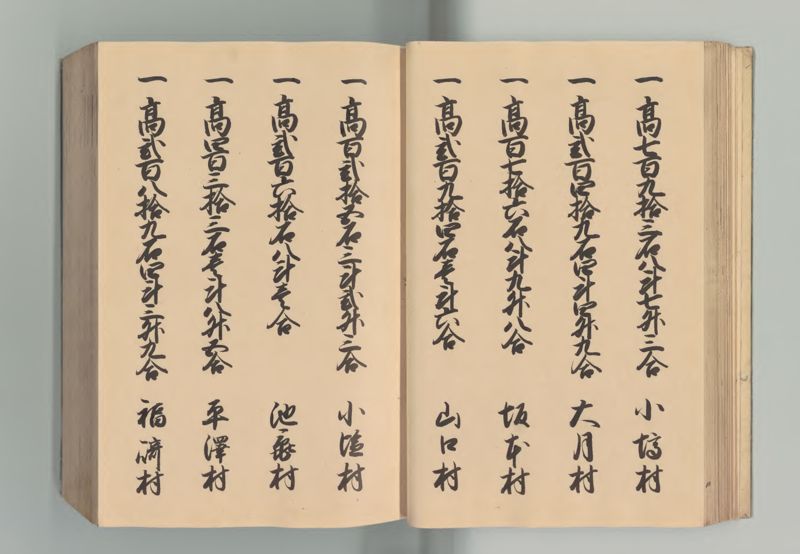 一 高七百九拾三石八斗七升三合 小村
一 高弐百四拾九石四斗四升九合 大月村
一 高百七拾六石八斗九升八合 坂本村
一 高弐百九拾四石壱斗六合 山口村
一 高百弐拾五石三斗弐升三合 小塩村
一 高弐百六拾石八斗壱合 池村
一 高四百三拾三石壱斗八升五合 平澤村
一 高弐百八拾九石四斗三升九合 福村